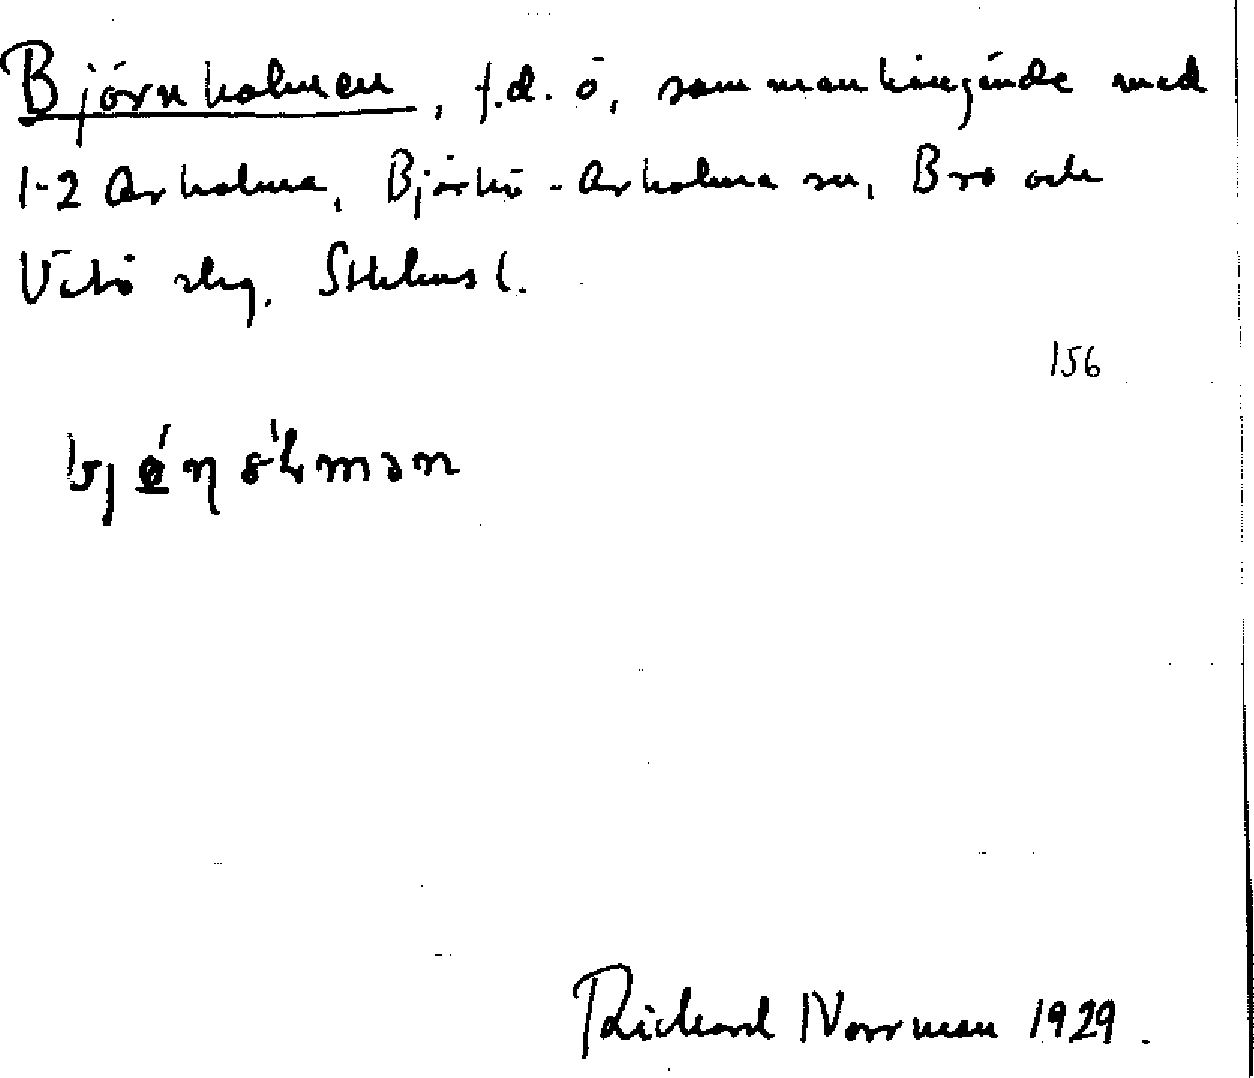 Björnholmen, f.d. ö, sammanhängande med
1-2 Arholma, Björkö-Arholma sn, Bro och
Vätö slg. Sthlms l.
156
Richard Norrman 1929.